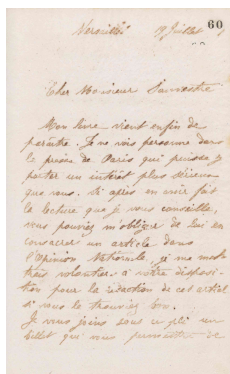 60
Versailles 9 Juillet
Cher Monsieur Sauvestre
Mon livre vient enfin de
paraître. Je ne vois personne dans
la presse de Paris qui puisse y
porter un intérêt plus sérieux
que vous. Si après en avoir fait
la lecture que je vous conseille,
vous pouviez m'obliger de lui en
consacrer un article dans
l'Opinion Nationale, je me mets
très volontiers à votre disposi-
tion pour la rédaction de cet article
si vous le trouviez bon.
Je vous joins sous ce pli un
billet qui vous permettra de